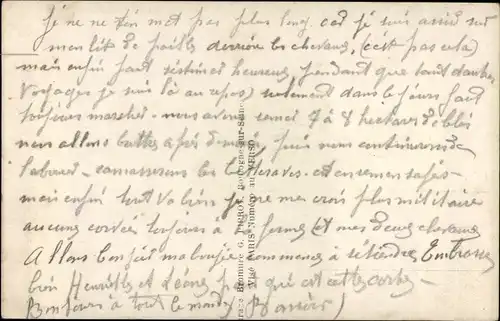 je ne t'en met pas plus long car je suis assis sur
mon lit de paille derrière les chevaux, (c'est pas cela)
mais enfin faut s'estimer heureux, pendant que tant d'autres
voyages je suis là au repos) seulement dans le jours faut
toujours marcher - nous avons semer 7 à 8 hectares de blés
nous allons battre après midi, puis nous continuerons de
labourer - ramasserons les betteraves et ensemen
mais enfin tout va bien je ne me crois plus militaire
aucune corvée toujours à ferme (et mes deux chevaux
Allons bonsoir ma bougie commence à s'éteindre Embrasse
bien Henriette et Léone pour qui est cette carte -
Bonjours à tout le monde (Bonsoir)
Bromure
Boulogne-sur-Seine
PARIS Numéro